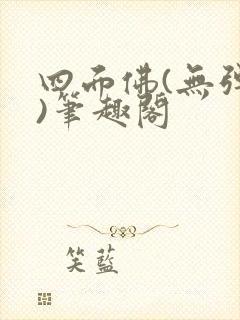 四而佛(無彈
)筆趣閣
笑藍